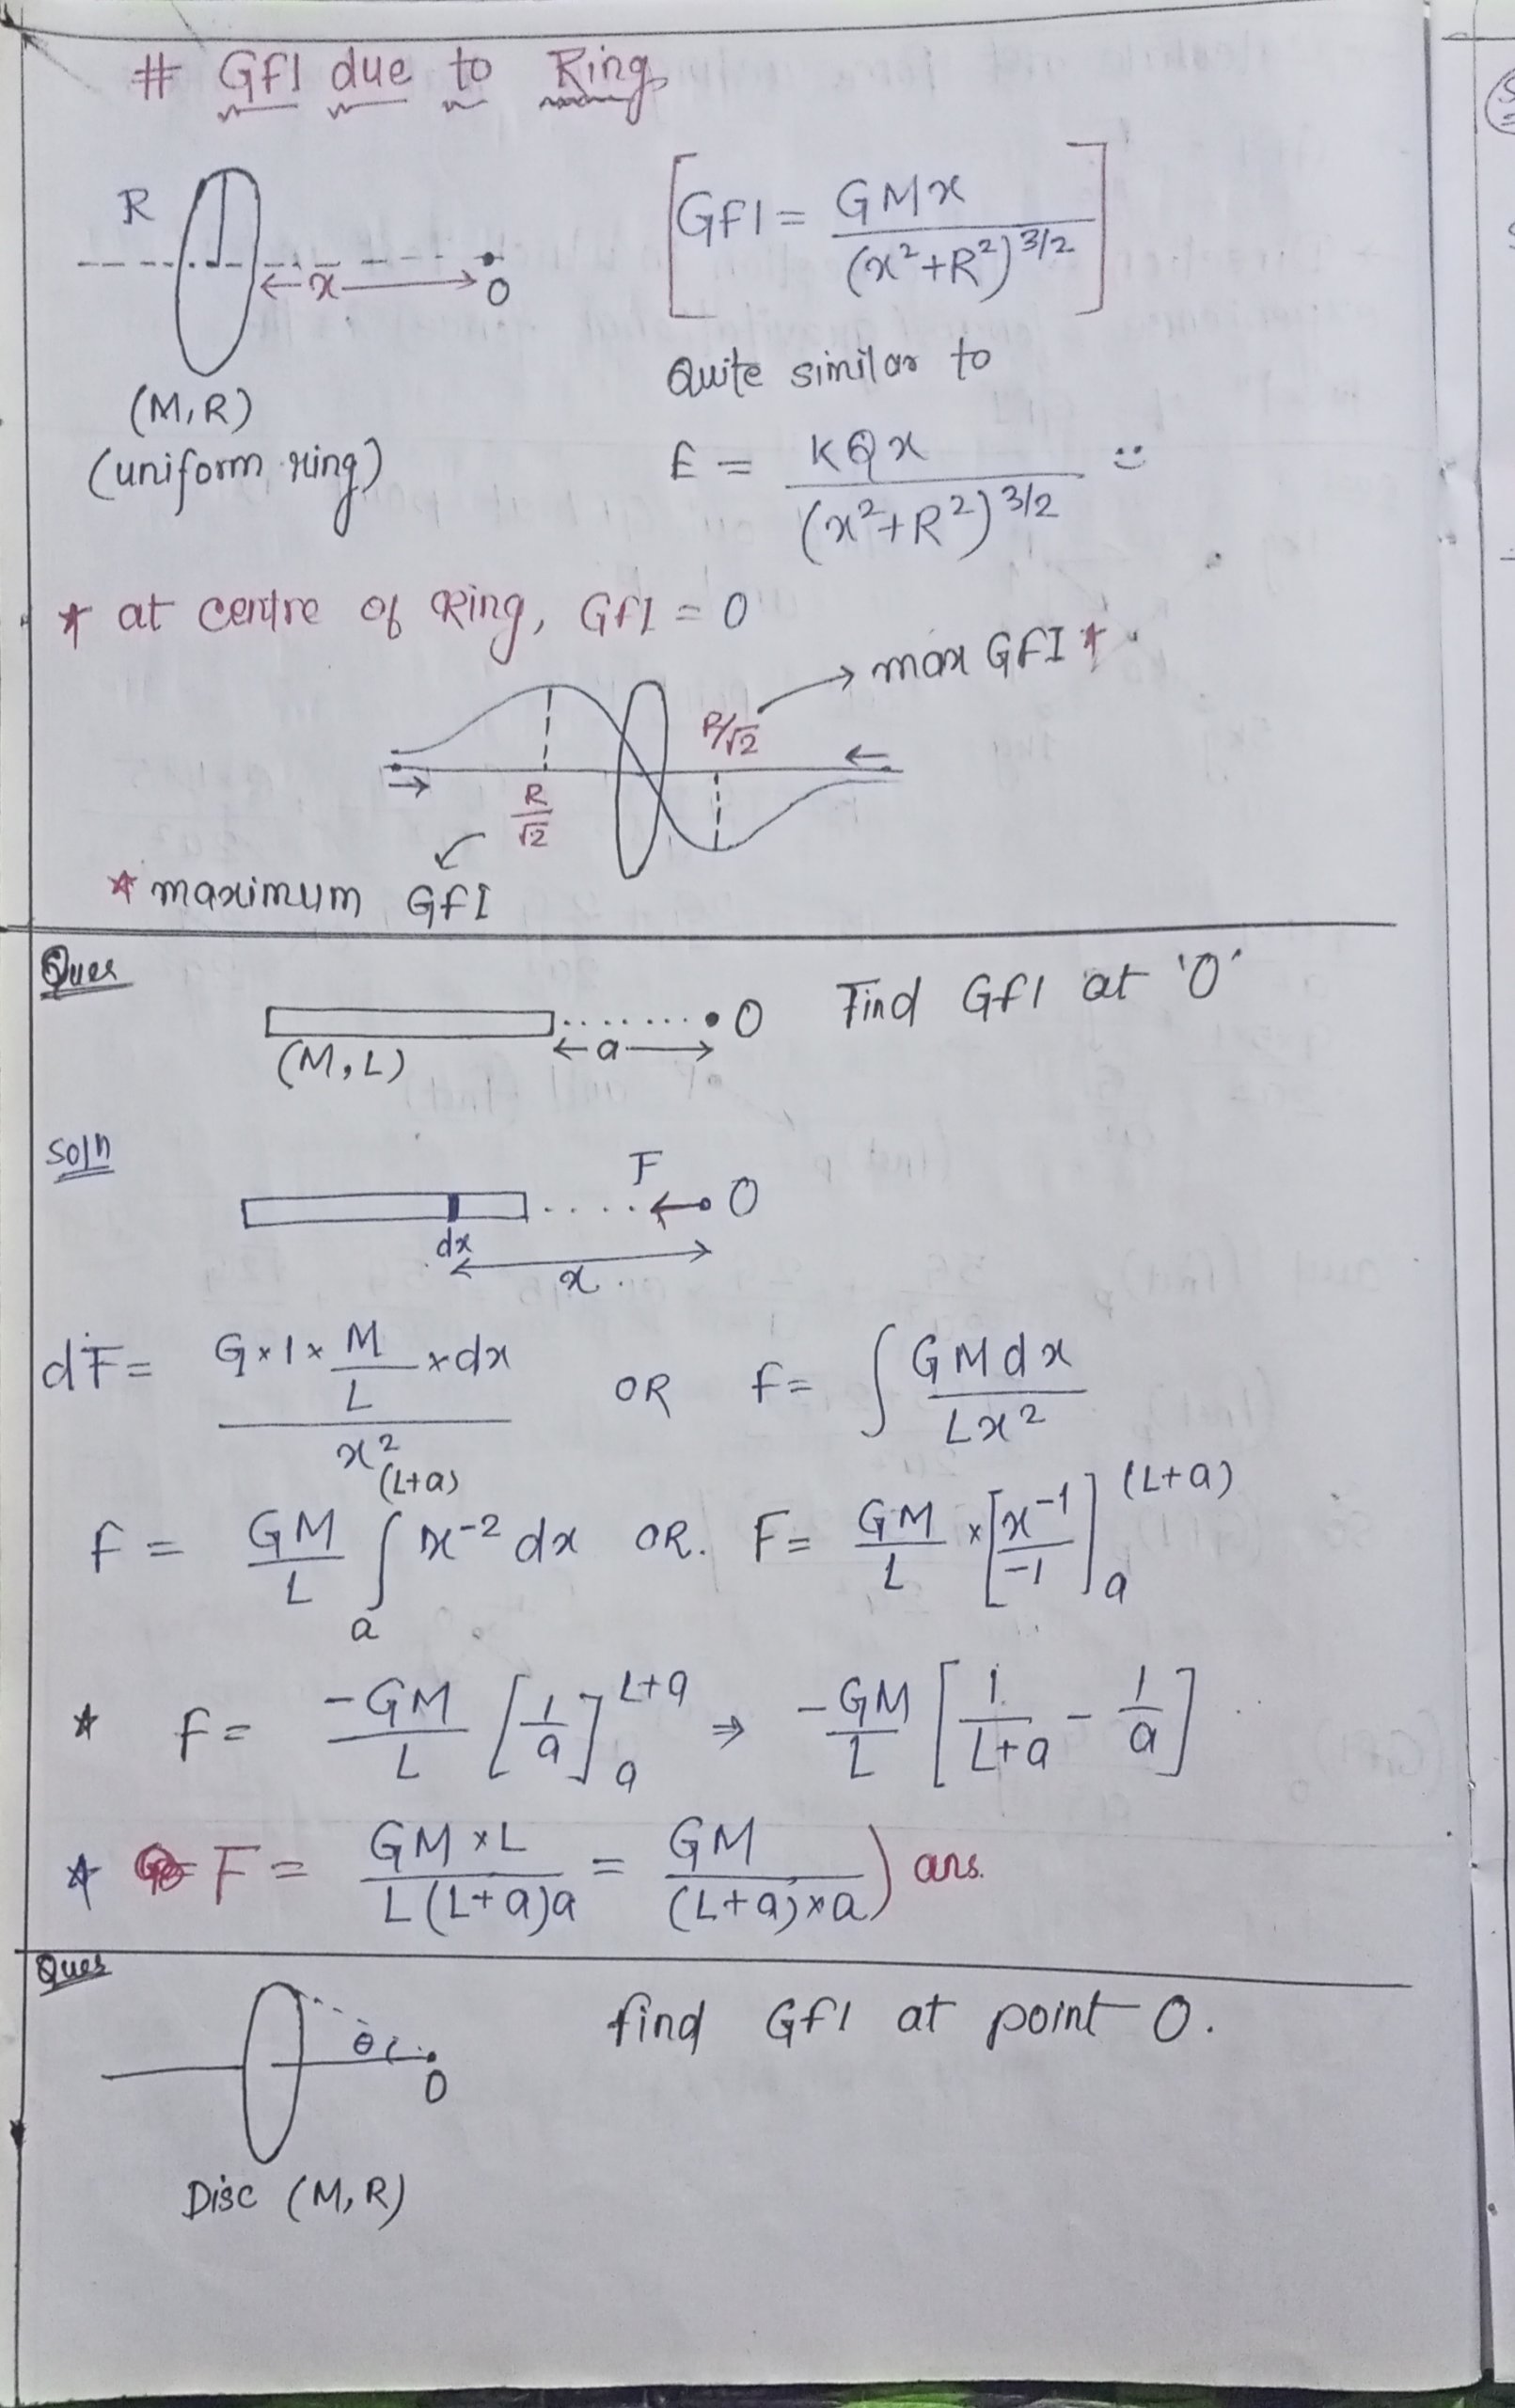 # GFI due to Ring
R
x
O
(M,R)
(uniform ring)
[GFI = GMx / (x²+R²)^3/2]
Quite similar to
E = KQx / (x²+R²)^3/2 :)
* at centre of Ring, GFI = 0
→ max GFI *
R/√2
R/√2
* maximum GFI
Ques
(M,L)
← a → O
Find GFI at 'O'
Soln
F
O
dx
x
dF = G×1×M/L×dx / x² OR F = ∫ GMdx / Lx²
F = GM/L ∫_a^(L+a) x^-2 dx OR. F = GM/L × [x^-1/-1]_a^(L+a)
* F = -GM/L [1/a]_a^L+a ⇒ -GM/L [1/L+a - 1/a]
* F = GM×L / L(L+a)a = GM / (L+a)×a) ans.
Ques
find GFI at point O.
θ
O
Disc (M,R)